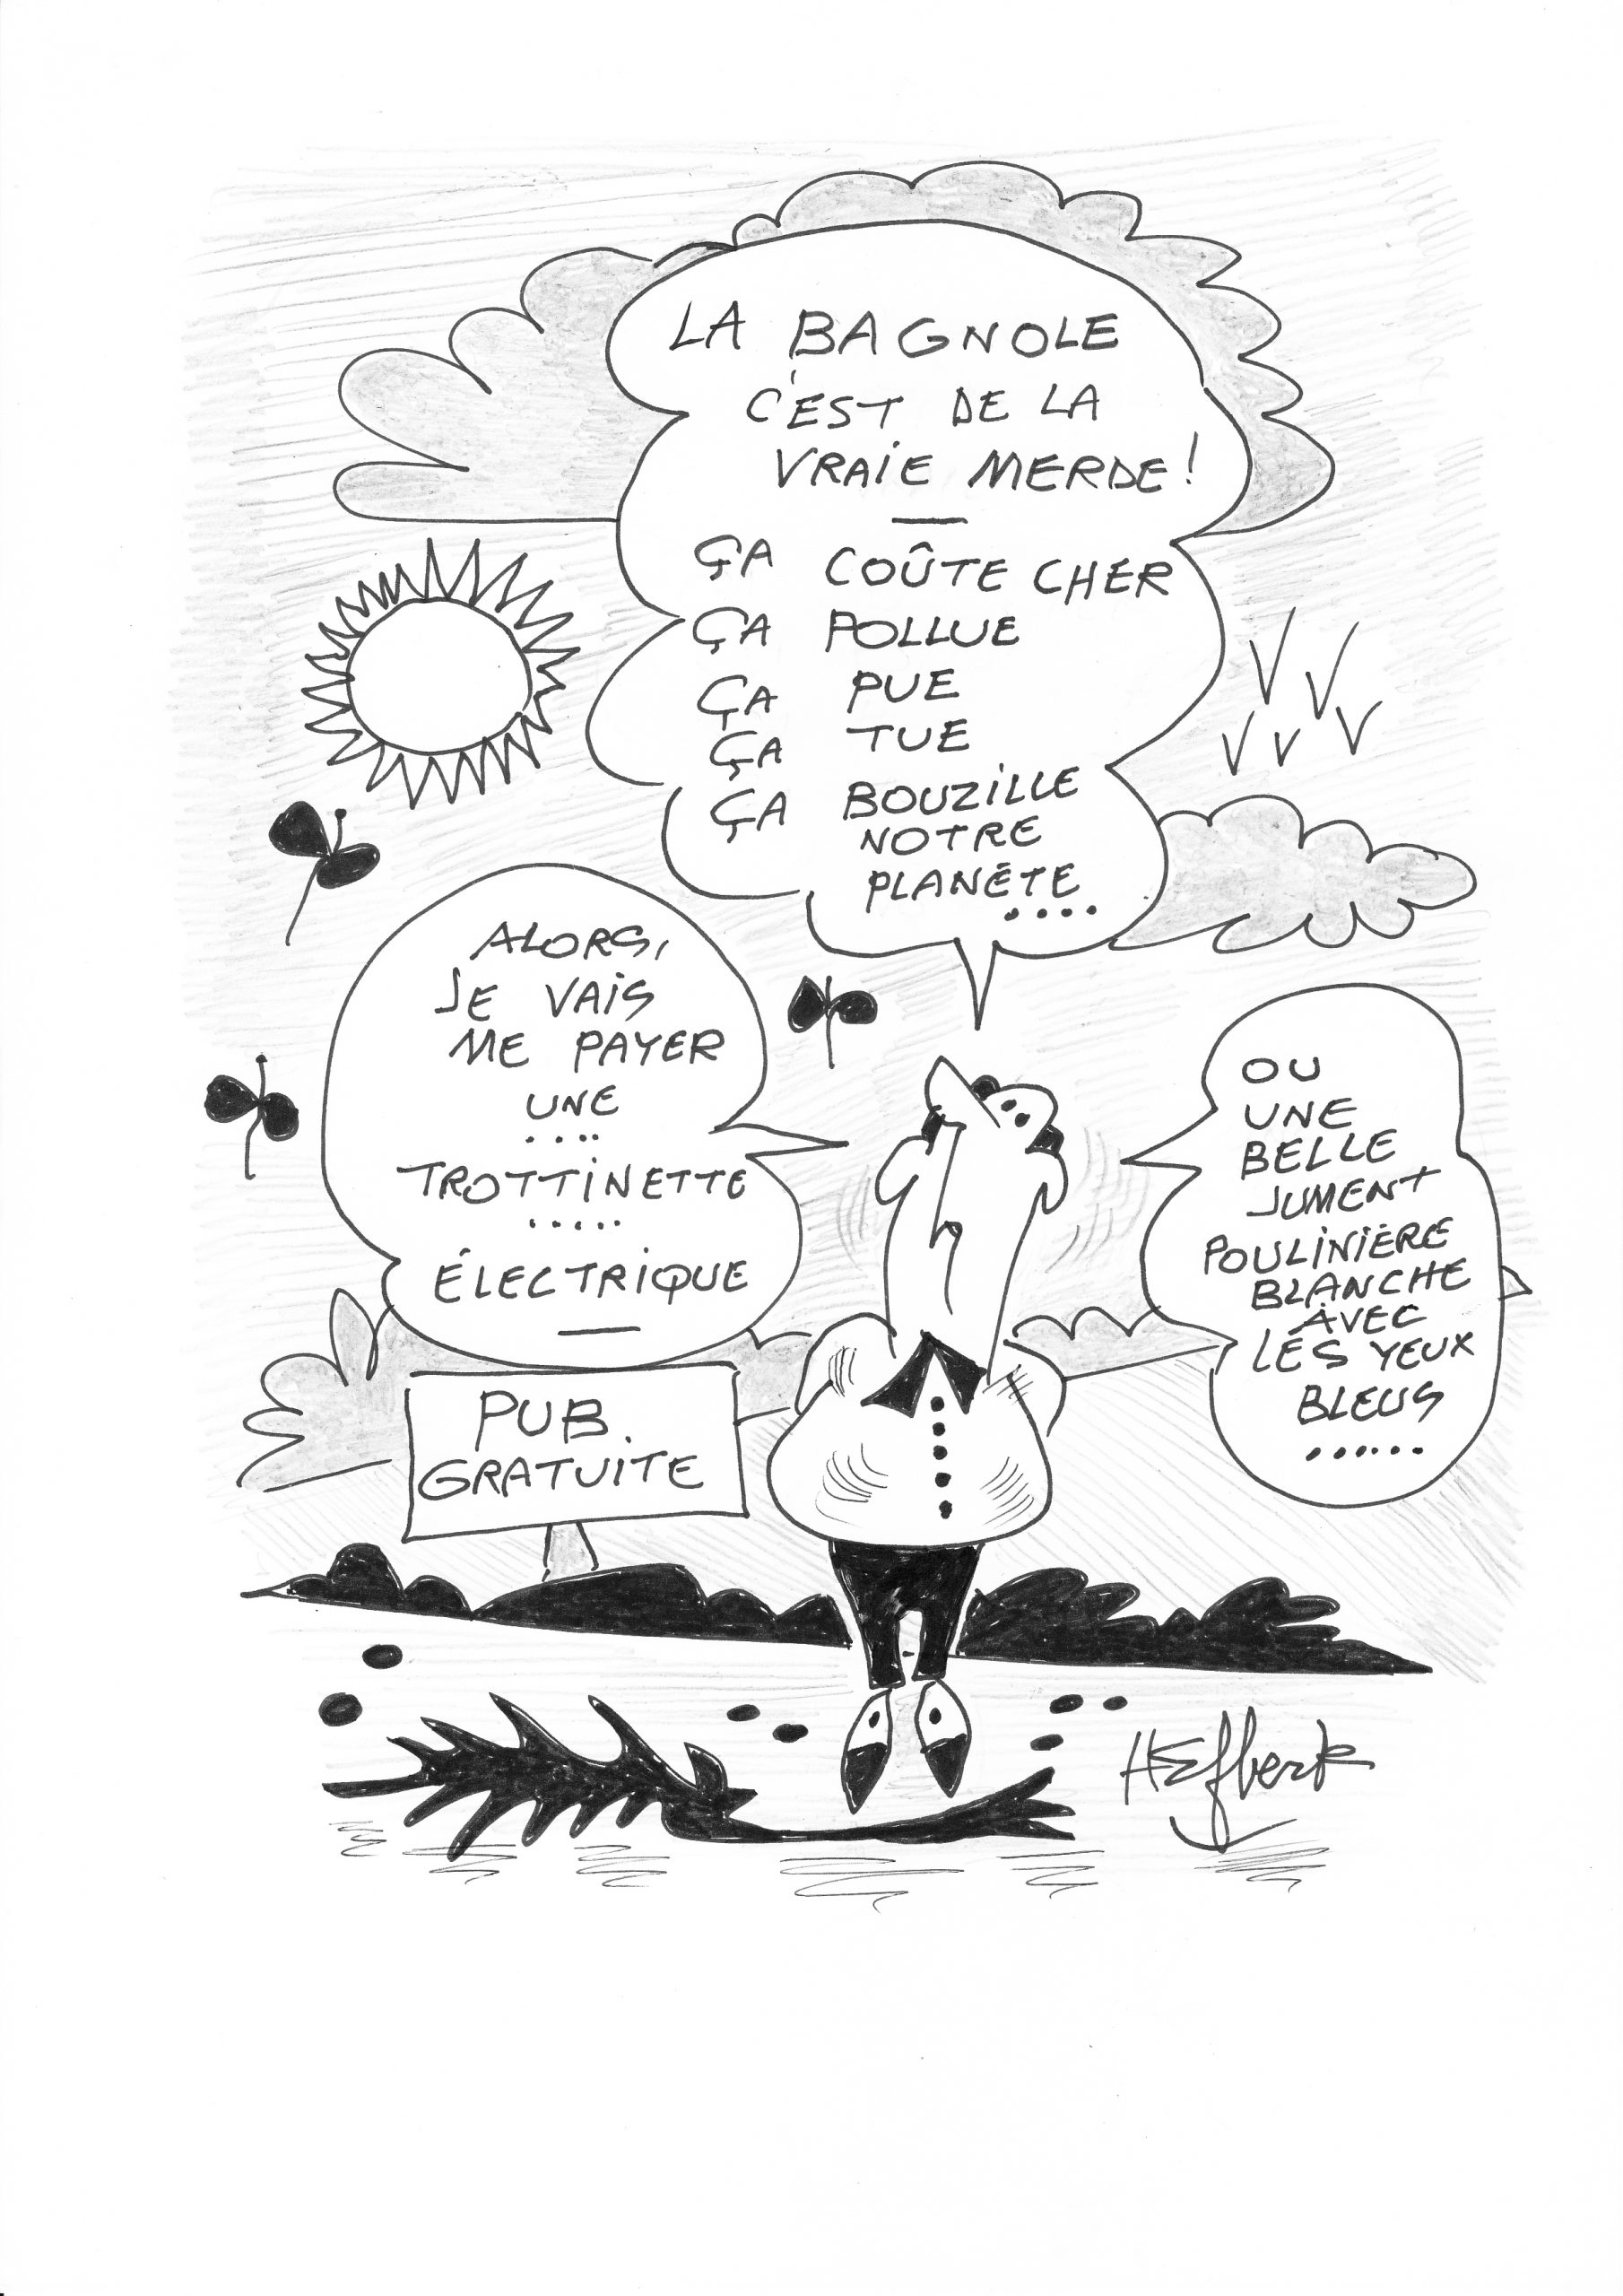 LA BAGNOLE
C'EST DE LA
VRAIE MERDE !
—
ÇA COÛTE CHER
ÇA POLLUE
ÇA PUE
ÇA TUE
ÇA BOUZILLE
NOTRE
PLANÈTE
....
ALORS,
JE VAIS
ME PAYER
UNE
.....
TROTTINETTE
.....
ÉLECTRIQUE
—
OU
UNE
BELLE
JUMENT
POULINIÈRE
BLANCHE
AVEC
LES YEUX
BLEUS
......
PUB.
GRATUITE